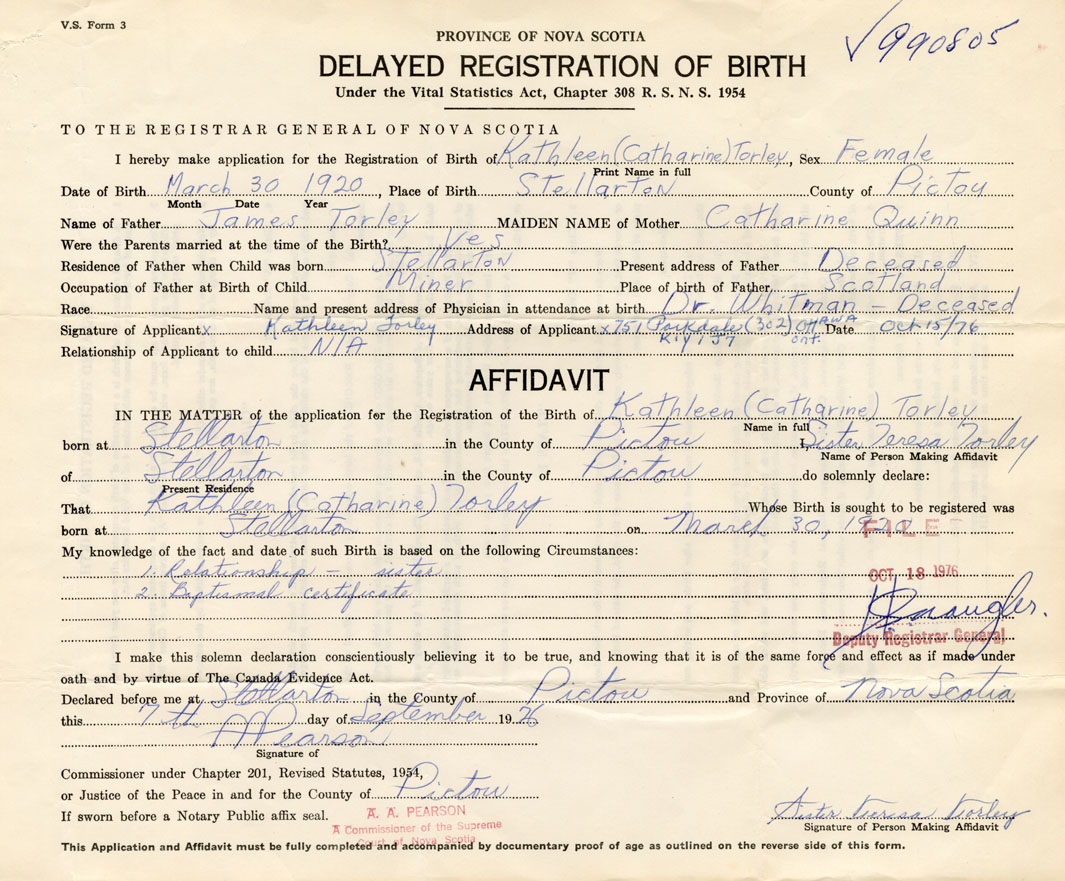 V.S. Form 3
PROVINCE OF NOVA SCOTIA
√990805
DELAYED REGISTRATION OF BIRTH
Under the Vital Statistics Act, Chapter 308 R. S. N. S. 1954
TO THE REGISTRAR GENERAL OF NOVA SCOTIA
I hereby make application for the Registration of Birth of Kathleen (Catharine) Torley, Sex Female
Print Name in full
Date of Birth March 30 1920, Place of Birth Stellarton County of Pictou
Month Date Year
Name of Father James Torley MAIDEN NAME of Mother Catharine Quinn
Were the Parents married at the time of the Birth? Yes
Residence of Father when Child was born Stellarton Present address of Father Deceased
Occupation of Father at Birth of Child Miner Place of birth of Father Scotland
Race Name and present address of Physician in attendance at birth Dr. Whitman - Deceased
Signature of Applicant x Kathleen Torley Address of Applicant x 751 Parkdale (302) Ottawa Date Oct 15/76
K1Y 1J7 Ont.
Relationship of Applicant to child N/A
AFFIDAVIT
IN THE MATTER of the application for the Registration of the Birth of Kathleen (Catharine) Torley
Name in full
born at Stellarton in the County of Pictou I, Sister Teresa Torley
Name of Person Making Affidavit
of Stellarton in the County of Pictou do solemnly declare:
Present Residence
That Kathleen (Catharine) Torley Whose Birth is sought to be registered was
born at Stellarton on March 30, 1920
FILE
My knowledge of the fact and date of such Birth is based on the following Circumstances:
1. Relationship - sister
OCT 18 1976
2. Baptismal certificate
Deputy Registrar General
I make this solemn declaration conscientiously believing it to be true, and knowing that it is of the same force and effect as if made under
oath and by virtue of The Canada Evidence Act.
Declared before me at Stellarton in the County of Pictou and Province of Nova Scotia
this 7th day of September 1976
AAPearson
Signature of
Commissioner under Chapter 201, Revised Statutes, 1954,
or Justice of the Peace in and for the County of Pictou
If sworn before a Notary Public affix seal.
A. A. PEARSON
A Commissioner of the Supreme
Court of Nova Scotia
Sister Teresa Torley
Signature of Person Making Affidavit
This Application and Affidavit must be fully completed and accompanied by documentary proof of age as outlined on the reverse side of this form.